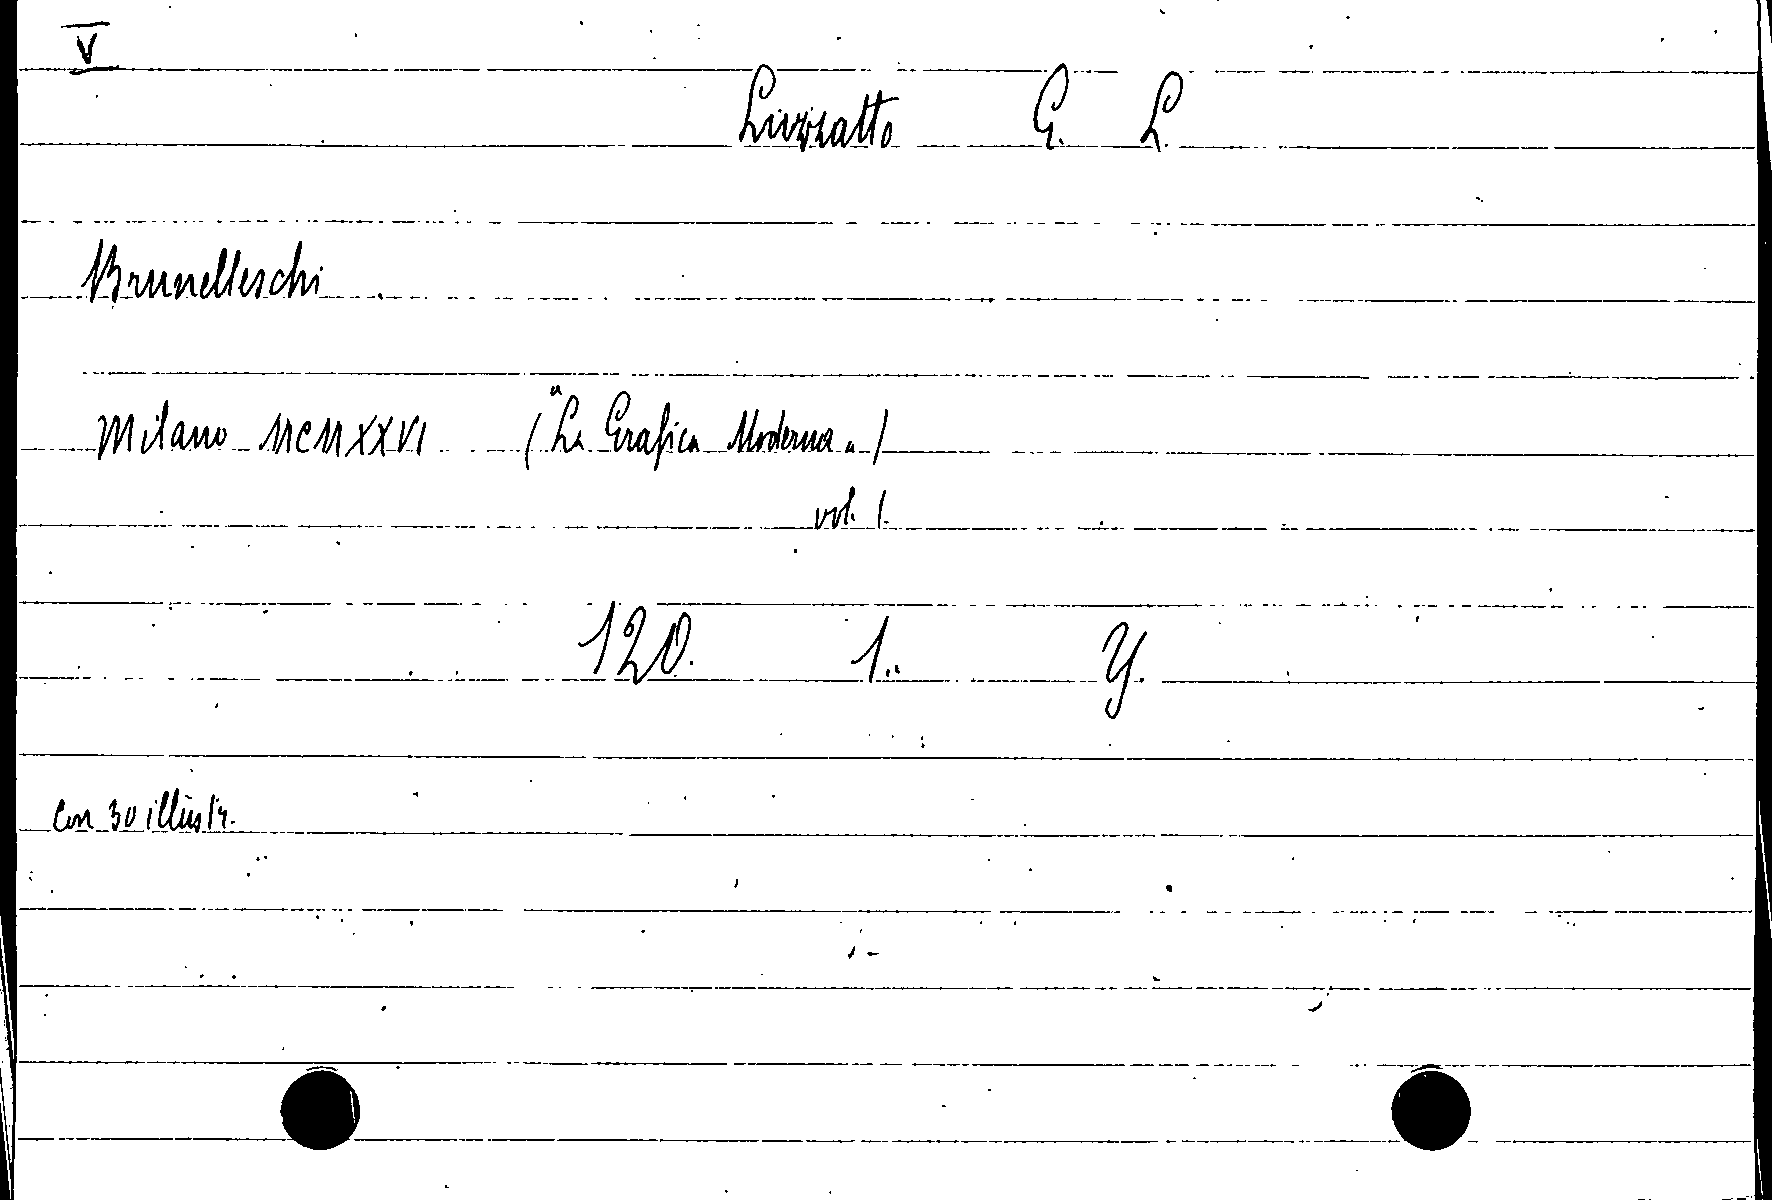 V
Luzzatto G. L.
Brunelleschi
Milano MCMXXVI ("La Grafica Moderna")
vol. 1.
120. 1. Y.
Con 30 illustr.